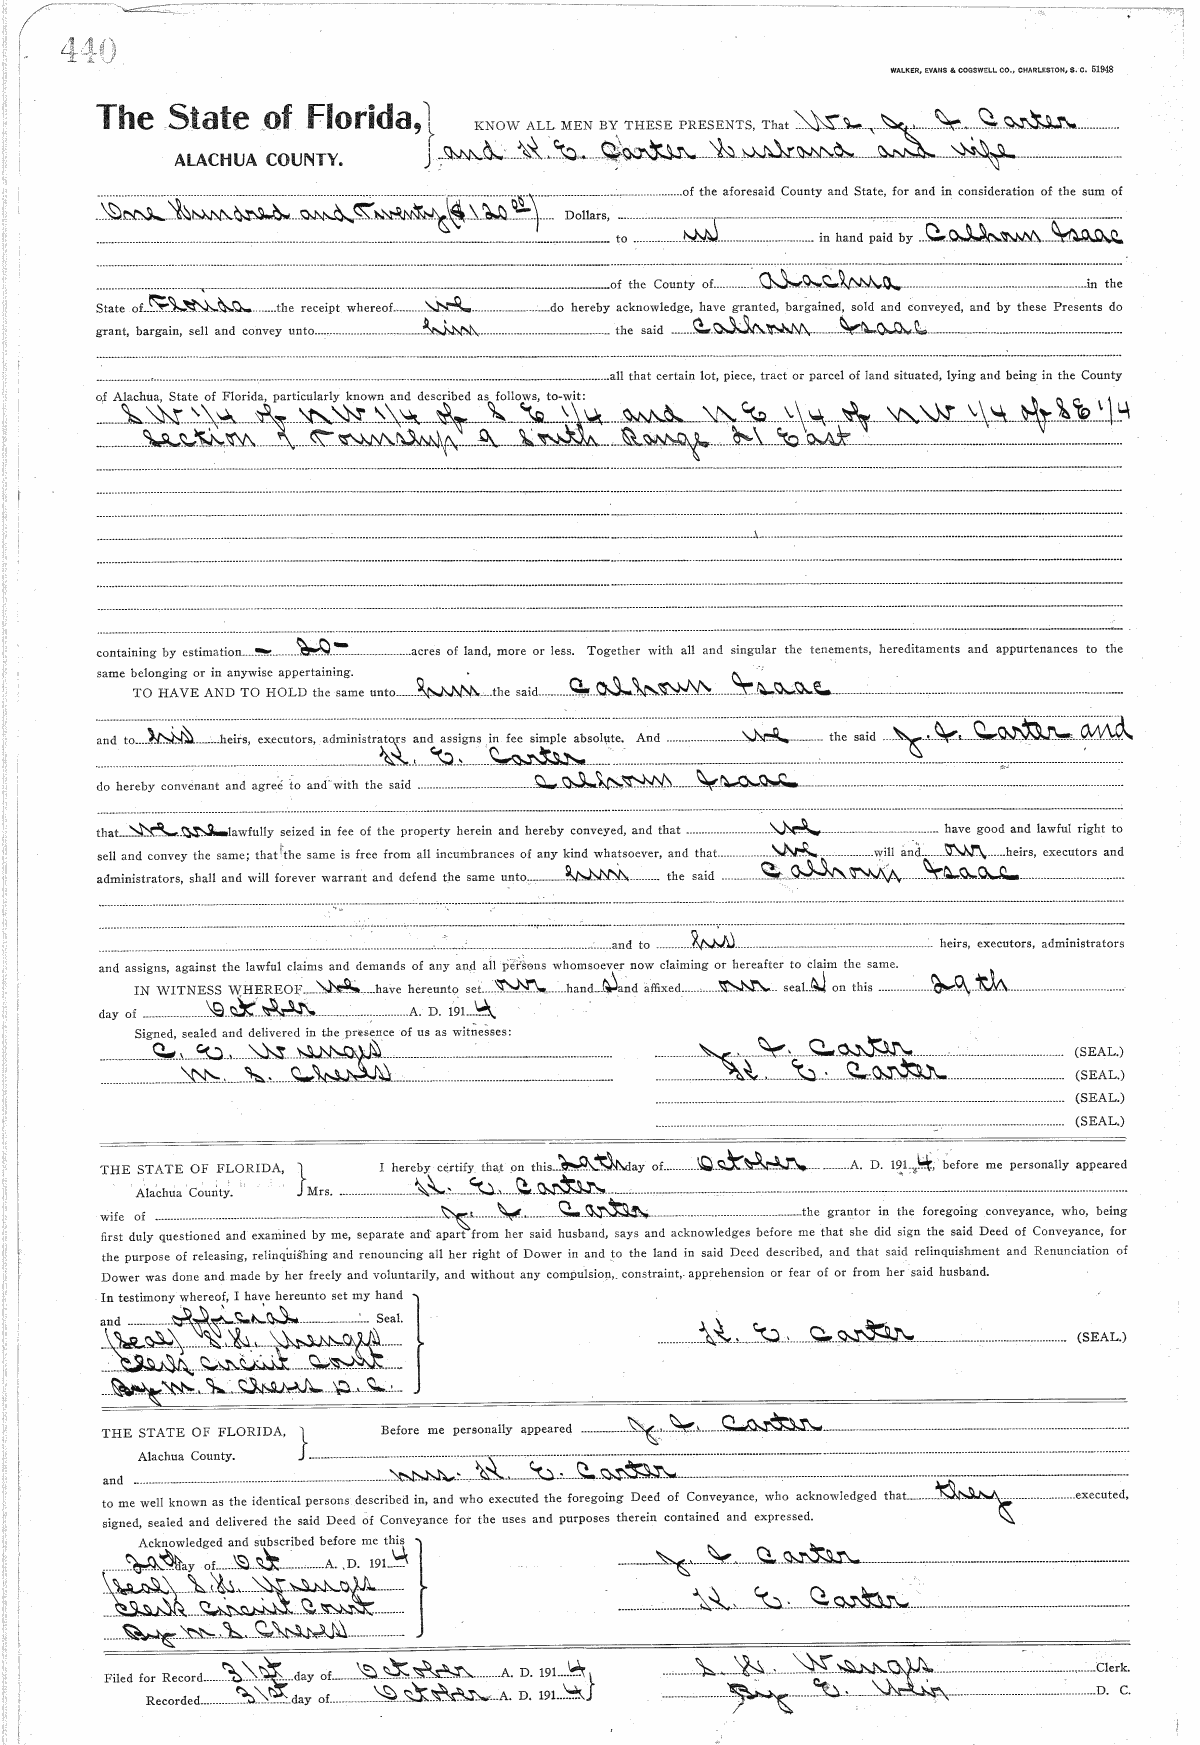 440
WALKER, EVANS & COGSWELL CO., CHARLESTON, S. C. 51948
The State of Florida, KNOW ALL MEN BY THESE PRESENTS, That We, J. I. Carter
ALACHUA COUNTY. and H. E. Carter Husband and wife
of the aforesaid County and State, for and in consideration of the sum of
One Hundred and Twenty ($120 00) Dollars,
to us in hand paid by Calhoun Isaac
of the County of Alachua in the
State of Florida the receipt whereof we do hereby acknowledge, have granted, bargained, sold and conveyed, and by these Presents do
grant, bargain, sell and convey unto him the said Calhoun Isaac
all that certain lot, piece, tract or parcel of land situated, lying and being in the County
of Alachua, State of Florida, particularly known and described as follows, to-wit:
S W 1/4 of N W 1/4 of S E 1/4 and N E 1/4 of N W 1/4 of S E 1/4
Section 7 Township 9 South Range 21 East
containing by estimation - 20 - acres of land, more or less. Together with all and singular the tenements, hereditaments and appurtenances to the
same belonging or in anywise appertaining.
TO HAVE AND TO HOLD the same unto him the said Calhoun Isaac
and to his heirs, executors, administrators and assigns in fee simple absolute. And we the said J. I. Carter and
H. E. Carter
do hereby convenant and agree to and with the said Calhoun Isaac
that we are lawfully seized in fee of the property herein and hereby conveyed, and that we have good and lawful right to
sell and convey the same; that the same is free from all incumbrances of any kind whatsoever, and that we will and our heirs, executors and
administrators, shall and will forever warrant and defend the same unto him the said Calhoun Isaac
and to his heirs, executors, administrators
and assigns, against the lawful claims and demands of any and all persons whomsoever now claiming or hereafter to claim the same.
IN WITNESS WHEREOF we have hereunto set our hand s and affixed our seal s on this 29th
day of October A. D. 191 4
Signed, sealed and delivered in the presence of us as witnesses:
C. E. Wienges J. I. Carter (SEAL.)
M. S. Cheves H. E. Carter (SEAL.)
(SEAL.)
(SEAL.)
THE STATE OF FLORIDA, I hereby certify that on this 29th day of October A. D. 191 4, before me personally appeared
Alachua County. Mrs. H. E. Carter
wife of J. I. Carter the grantor in the foregoing conveyance, who, being
first duly questioned and examined by me, separate and apart from her said husband, says and acknowledges before me that she did sign the said Deed of Conveyance, for
the purpose of releasing, relinquishing and renouncing all her right of Dower in and to the land in said Deed described, and that said relinquishment and Renunciation of
Dower was done and made by her freely and voluntarily, and without any compulsion, constraint, apprehension or fear of or from her said husband.
In testimony whereof, I have hereunto set my hand
and official Seal.
(Seal) S. H. Wienges H. E. Carter (SEAL.)
Clerk Circuit Court
By M. S. Cheves D. C.
THE STATE OF FLORIDA, Before me personally appeared J. I. Carter
Alachua County.
and Mrs. H. E. Carter
to me well known as the identical persons described in, and who executed the foregoing Deed of Conveyance, who acknowledged that they executed,
signed, sealed and delivered the said Deed of Conveyance for the uses and purposes therein contained and expressed.
Acknowledged and subscribed before me this
29th day of Oct A. D. 191 4 J. I. Carter
(Seal) S. H. Wienges
Clerk Circuit Court H. E. Carter
By M. S. Cheves
Filed for Record 31st day of October A. D. 191 4 S. H. Wienges Clerk.
Recorded 31st day of October A. D. 191 4 By E. D. C.